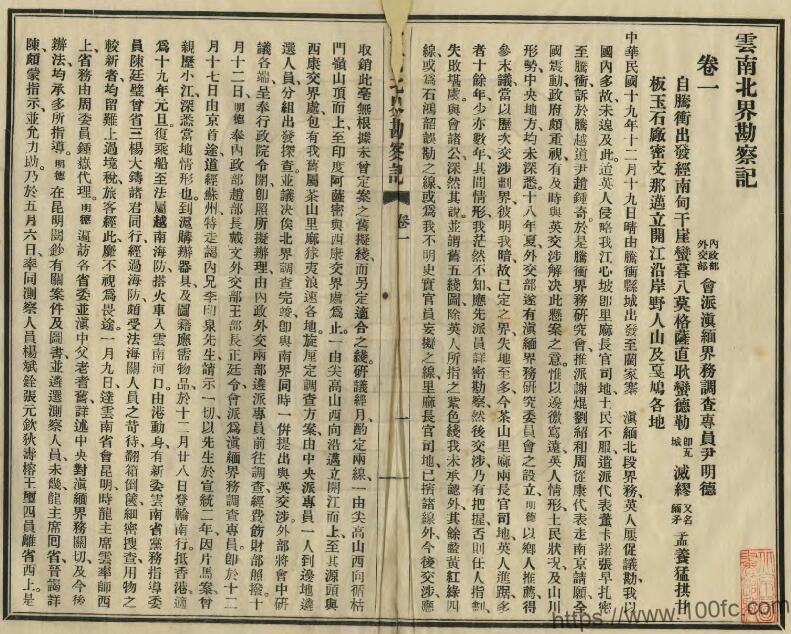 雲南北界勘察記
卷一
內政部
外交部
會派滇緬界務調查專員尹明德
自騰衝出發經南甸干崖蠻暮八莫格薩直耿蠻德勒
即瓦城
滅繆
又名緬矛
孟養猛拱甘
板玉石廠密支那邁立開江沿岸野人山及戛鳩各地
中華民國十九年十二月十九日晴由騰衝縣城出發至藺家寨 滇緬北段界務英人屢促議勘我以
國內多故未遑及此迨英人侵略我江心坡卽里麻長官司地土民不服遣派代表董卡諾張早扎密
至騰衝訴於騰越道尹趙鍾奇於是騰衝界務研究會推派謝焜劉紹和周從康代表走南京請願全
國震動政府頗重視有及時與英交涉解决此懸案之意惟以邊徼寫遠英人情形土民狀況及山川
形勢中央地方均未深悉十八年夏外交部遂有滇緬界務研究委員會之設立明德以鄉人推薦得
參末議當以歷次交涉劃界彼明我暗故已定之界失地至多今茶山里麻兩長官司地英人進踞多
者十餘年少亦數年其間情形我茫然不知應先派員詳密勘察然後交涉乃有把握否則任人指劃
失敗堪虞與會諸公深然其說並謂舊五綫圖除英人所指之紫色綫我未承認外其餘藍黃紅綠四
線或爲石鴻韶誤勘之線或爲我不明史實官員妄擬之線里麻長官司地已擠諸線外今後交涉應
北界勘察記
卷一
一
取銷此毫無根據未曾定案之舊擬綫而另定適合之綫研議經月酌定兩綫一由尖高山西向循枯
門嶺山頂而上至印度阿薩密與西康交界處爲止一由尖高山西向沿邁立開江而上至其源頭與
西康交界處包有我舊屬茶山里麻俅夷浪速各地旋厘定調查方案由中央派專員一人到邊地遴
選人員分組出發探查並議决俟北界調查完竣卽與南界同時一併提出與英交涉外部將會中研
議各端呈奉行政院令開卽照所擬辦理由內政外交兩部遴派專員前往調查經費飭財部照撥十
月十二日明德奉內政部趙部長戴文外交部王部長正廷令會派爲滇緬界務調查專員卽於十二
月十七日由京首途道經蘇州特走謁內兄李印泉先生請示一切以先生於宣統二年因片馬案曾
親歷小江深悉當地情形也到滬購辦器具及圖籍應需物品於十二月廿八日登輪南行抵香港適
爲十九年元旦復乘船至法屬越南海防搭火車入雲南河口由港動身有新委雲南省黨務指導委
員陳廷璧曾省三楊大鑄諸君同行經過海防頗受法海關人員之苛待翻箱倒篋細密搜查用物之
較新者均留難上過境稅旅客經此靡不視爲畏途一月九日達雲南省會昆明時龍主席雲率師西
上省務由周委員鍾嶽代理明德遍訪各省委並滇中父老耆舊詳述中央對滇緬界務關切及今後
辦法均承多所指導明德在昆明閱鈔有關案件及圖書並遴選測察人員未幾龍主席回省晋謁詳
陳頗蒙指示並允力助乃於五月六日率同測察人員楊斌銓張元欽狄壽榕王璽四員離省西上是
https://www.100fc.com